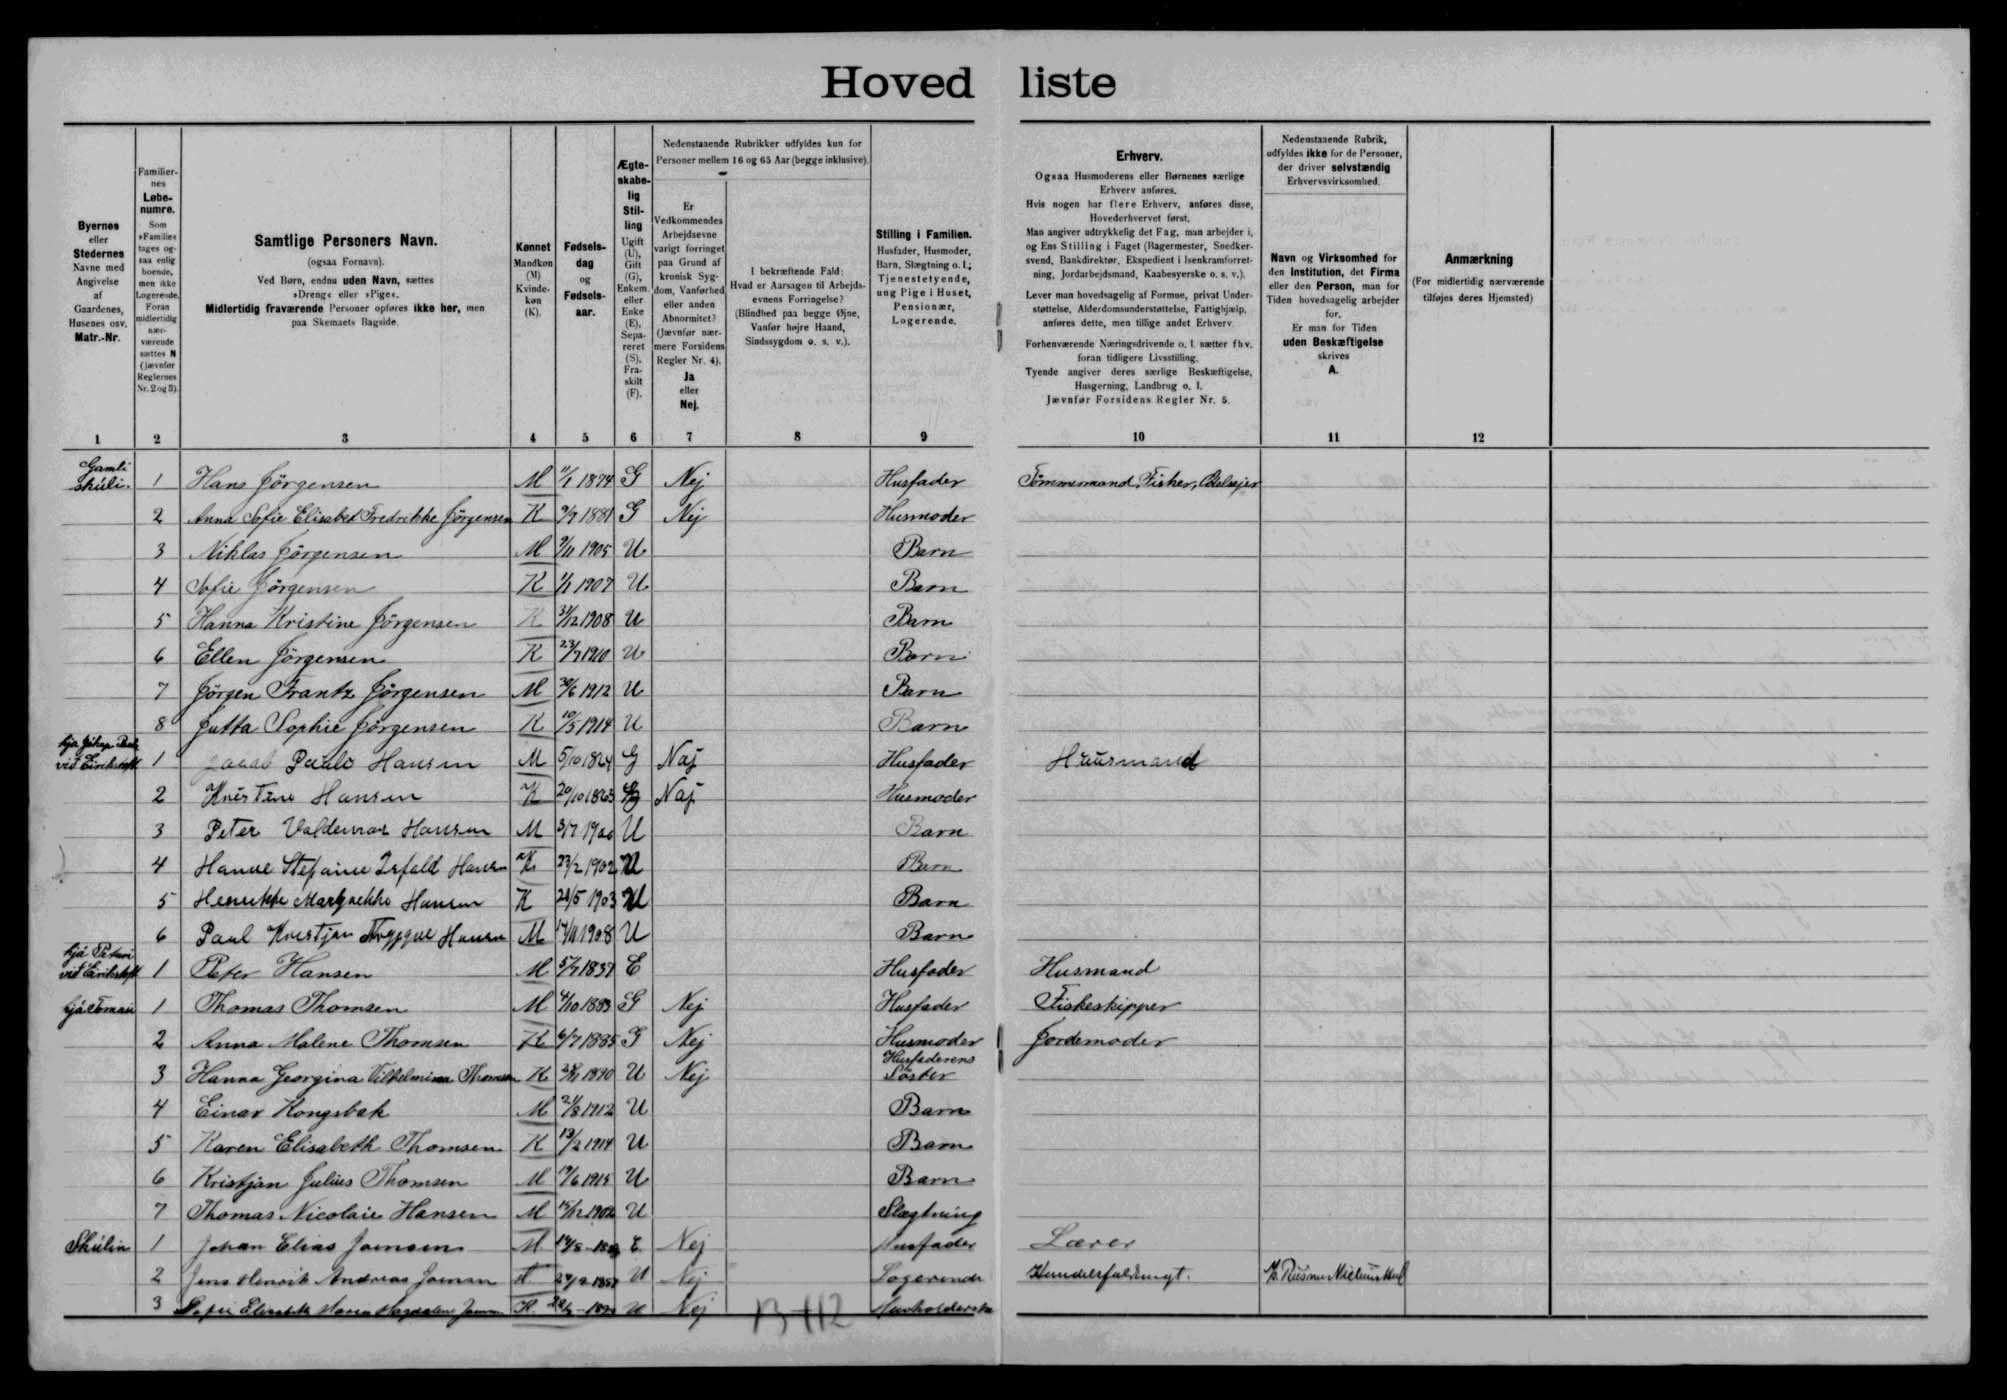 Hoved liste
Byernes
eller
Stedernes
Navne med
Angivelse
af
Gaardenes,
Husenes osv.
Matr.-Nr.
Familier-
nes
Løbe-
numre.
Som
»Familie«
tages og-
saa enlig
boende,
men ikke
Logerende.
Foran
midlertidig
nær-
værende
sættes N
(jævnfør
Reglernes
Nr. 2 og 3).
Samtlige Personers Navn.
(ogsaa Fornavn).
Ved Børn, endnu uden Navn, sættes
»Dreng« eller »Pige«.
Midlertidig fraværende Personer opføres ikke her, men
paa Skemaets Bagside.
Kønnet
Mandkøn
(M)
Kvinde-
køn
(K).
Fødsels-
dag
og
Fødsels-
aar.
Ægte-
skabe-
lig
Stil-
ling
Ugift
(U),
Gift
(G),
Enkem.
eller
Enke
(E),
Sepa-
reret
(S),
Fra-
skilt
(F).
Nedenstaaende Rubrikker udfyldes kun for
Personer mellem 16 og 65 Aar (begge inklusive).
Er
Vedkommendes
Arbejdsevne
varigt forringet
paa Grund af
kronisk Syg-
dom, Vanførhed
eller anden
Abnormitet?
(Jævnfør nær-
mere Forsidens
Regler Nr. 4).
Ja
eller
Nej.
I bekræftende Fald:
Hvad er Aarsagen til Arbejds-
evnens Forringelse?
(Blindhed paa begge Øjne,
Vanfør højre Haand,
Sindssygdom o. s. v.).
Stilling i Familien.
Husfader, Husmoder,
Barn, Slægtning o. l.;
Tjenestetyende,
ung Pige i Huset,
Pensionær,
Logerende.
Erhverv.
Ogsaa Husmoderens eller Børnenes særlige
Erhverv anføres.
Hvis nogen har flere Erhverv, anføres disse,
Hovederhvervet først.
Man angiver udtrykkelig det Fag, man arbejder i,
og Ens Stilling i Faget (Bagermester, Snedker-
svend, Bankdirektør, Ekspedient i Isenkramforret-
ning, Jordarbejdsmand, Kaabesyerske o. s. v.).
Lever man hovedsagelig af Formue, privat Under-
støttelse, Alderdomsunderstøttelse, Fattighjælp,
anføres dette, men tillige andet Erhverv.
Forhenværende Næringsdrivende o. l. sætter fhv.
foran tidligere Livsstilling.
Tyende angiver deres særlige Beskæftigelse,
Husgerning, Landbrug o. l.
Jævnfør Forsidens Regler Nr. 5.
Nedenstaaende Rubrik,
udfyldes ikke for de Personer,
der driver selvstændig
Erhvervsvirksomhed.
Navn og Virksomhed for
den Institution, det Firma
eller den Person, man for
Tiden hovedsagelig arbejder
for.
Er man for Tiden
uden Beskæftigelse
skrives
A.
Anmærkning
(For midlertidig nærværende
tilføjes deres Hjemsted)
1 2 3 4 5 6 7 8 9 10 11 12
Gamli
skúli. 1 Hans Jörgensen M 11/1 1874 G Nej Husfader Tömmermand, Fisker, Odelsejer
2 Anna Sofie Elisabet Fredrikke Jörgensen K 9/7 1881 G Nej Husmoder
3 Niklas Jörgensen M 9/11 1905 U Barn
4 Sofie Jörgensen K 1/1 1907 U Barn
5 Hanna Kristine Jörgensen K 31/12 1908 U Barn
6 Ellen Jörgensen K 23/7 1910 U Barn
7 Jörgen Frantz Jörgensen M 30/6 1912 U Barn
8 Jutta Sophie Jörgensen K 10/5 1914 U Barn
hjá
við 1 Paulo Hansen M 5/10 G Naj Husfader Hausmand
2 Kristine Hansen K 20/10 1863 G Naj Husmoder
3 Peter Valdemar Hansen M 3/7 1900 U Barn
4 Hanne Stefanie Hansen K 23/2 1902 U Barn
5 Henrikke Hansen K 24/5 1903 U Barn
6 Paul Kristjan Tryggve Hansen M 17/11 1908 U Barn
hjá Peturi
við 1 Peter Hansen M 1837 E Husfader Husmand
hjá Tomasi 1 Thomas Thomsen M 4/10 1883 G Nej Husfader Fiskeskipper
2 Anna Malene Thomsen K 6/7 1885 G Nej Husmoder Jordemoder
Husfaderens
3 Hanna Georgina Vilhelmina Thomsen K 1890 U Nej Söster
4 Einar Kongsbak M 21/8 1912 U Barn
5 Karen Elisabeth Thomsen K 13/2 1914 U Barn
6 Kristjan Julius Thomsen M 19/6 1915 U Barn
7 Thomas Nicolaie Hansen M 15/12 1902 U Slægtning
Skúlin 1 Johan Elias Joensen M E. Nej Husfader Lærer
2 Jens Henrik Andreas Joensen U Nej Logerende Handelsfuldmægt.
3 Sofie Elisabeth Maria Magdalen K. U Nej Husholderske